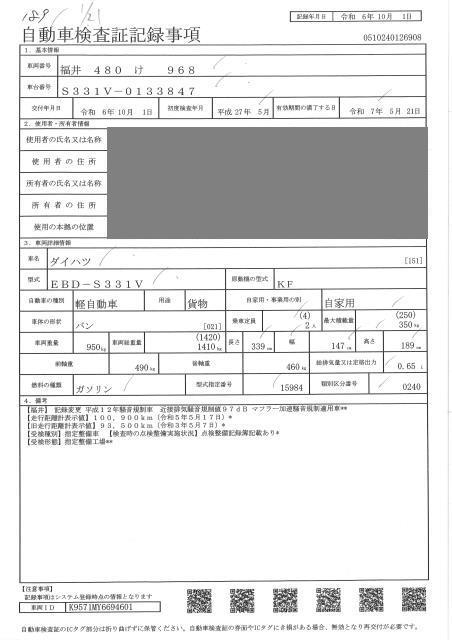 189 1/21
記録年月日 令和 6年10月 1日
自動車検査証記録事項
0510240126908
1．基本情報
車両番号 福井 480 け 968
車台番号 S331V-0133847
交付年月日 令和 6年10月 1日 初度検査年月 平成27年 5月 有効期間の満了する日 令和 7年 5月 21日
2．使用者・所有者情報
使用者の氏名又は名称
使用者の住所
所有者の氏名又は名称
所有者の住所
使用の本拠の位置
3．車両詳細情報
車名 ダイハツ [151]
型式 EBD-S331V 原動機の型式 KF
自動車の種別 軽自動車 用途 貨物 自家用・事業用の別 自家用
車体の形状 バン [021] 乗車定員 (4) 2人 最大積載量 (250) 350kg
車両重量 950kg 車両総重量 (1420) 1410kg 長さ 339cm 幅 147cm 高さ 189cm
前軸重 490kg 後軸重 460kg 総排気量又は定格出力 0.65 L
燃料の種類 ガソリン 型式指定番号 15984 類別区分番号 0240
4．備考
【福井】 記録変更 平成12年騒音規制車 近接排気騒音規制値97dB マフラー加速騒音規制適用車**
【走行距離計表示値】100,900km（令和5年5月17日）*
【旧走行距離計表示値】93,500km（令和3年5月7日）*
【受検種別】指定整備車 【検査時の点検整備実施状況】点検整備記録簿記載あり*
【受検形態】指定整備工場**
【注意事項】
記録事項はシステム登録時点の情報となります
車両ID K9571MY6694601
自動車検査証のICタグ部分は折り曲げずに保管ください。自動車検査証の券面やICタグにき損がある場合、無効となり再交付が必要です。